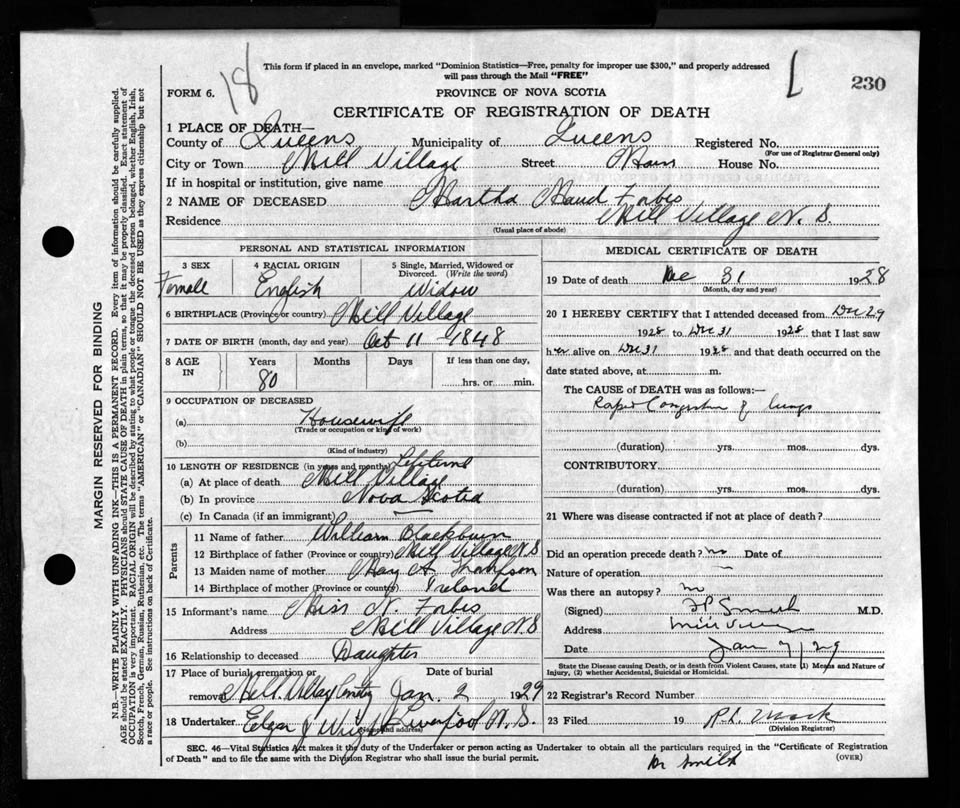 18
This form if placed in an envelope, marked "Dominion Statistics—Free, penalty for improper use $300," and properly addressed
will pass through the Mail "FREE"
L
230
FORM 6.
PROVINCE OF NOVA SCOTIA
CERTIFICATE OF REGISTRATION OF DEATH
1 PLACE OF DEATH—
County of Queens Municipality of Queens Registered No.
(For use of Registrar General only)
City or Town Mill Village Street Main House No.
If in hospital or institution, give name
2 NAME OF DECEASED Martha Maud Forbes
Residence Mill Village N. S.
(Usual place of abode)
PERSONAL AND STATISTICAL INFORMATION
3 SEX 4 RACIAL ORIGIN 5 Single, Married, Widowed or
Divorced. (Write the word)
Female English Widow
6 BIRTHPLACE (Province or country) Mill Village
7 DATE OF BIRTH (month, day and year) Oct 11 1848
8 AGE Years Months Days If less than one day,
IN 80 hrs. or min.
9 OCCUPATION OF DECEASED
(a) Housewife
(Trade or occupation or kind of work)
(b)
(Kind of industry)
10 LENGTH OF RESIDENCE (in years and months) Lifetime
(a) At place of death Mill Village
(b) In province Nova Scotia
(c) In Canada (if an immigrant) —
Parents
11 Name of father William Blackburn
12 Birthplace of father (Province or country) Mill Village N S
13 Maiden name of mother May A. Thompson
14 Birthplace of mother (Province or country) Ireland
15 Informant's name Miss N. Forbes
Address Mill Village N. S
16 Relationship to deceased Daughter
17 Place of burial, cremation or Date of burial
removal Mill Village Cemetry Jan. 2 1929
18 Undertaker Liverpool N. S.
(Name and address)
MEDICAL CERTIFICATE OF DEATH
19 Date of death Dec 31 1928
(Month, day and year)
20 I HEREBY CERTIFY that I attended deceased from Dec 29
1928 to Dec 31 1928 that I last saw
her alive on Dec 31 1928 and that death occurred on the
date stated above, at m.
The CAUSE of DEATH was as follows:—
Rapid Congestion of lungs
(duration) yrs. mos. dys.
CONTRIBUTORY
(duration) yrs. mos. dys.
21 Where was disease contracted if not at place of death?
Did an operation precede death? no Date of
Nature of operation —
Was there an autopsy? no
(Signed) Smith M.D.
Address Mill Village
Date Jan 7/29
State the Disease causing Death, or in death from Violent Causes, state (1) Means and Nature of
Injury, (2) whether Accidental, Suicidal or Homicidal.
22 Registrar's Record Number
23 Filed 19 Mack
(Division Registrar)
SEC. 46—Vital Statistics Act makes it the duty of the Undertaker or person acting as Undertaker to obtain all the particulars required in the "Certificate of Registration
of Death" and to file the same with the Division Registrar who shall issue the burial permit.
(OVER)
Dr Smith
MARGIN RESERVED FOR BINDING
N.B.—WRITE PLAINLY WITH UNFADING INK—THIS IS A PERMANENT RECORD. Every item of information should be carefully supplied.
AGE should be stated EXACTLY. PHYSICIANS should STATE CAUSE OF DEATH in plain terms, so that it may be properly classified. Exact statement of
OCCUPATION is very important. RACIAL ORIGIN will be described by stating to what people or tongue the deceased person belonged, whether English, Irish,
Scotch, French, German, Russian, Ruthenian, etc. The terms "AMERICAN" or "CANADIAN" SHOULD NOT BE USED as they express citizenship but not
a race or people. See instructions on back of Certificate.